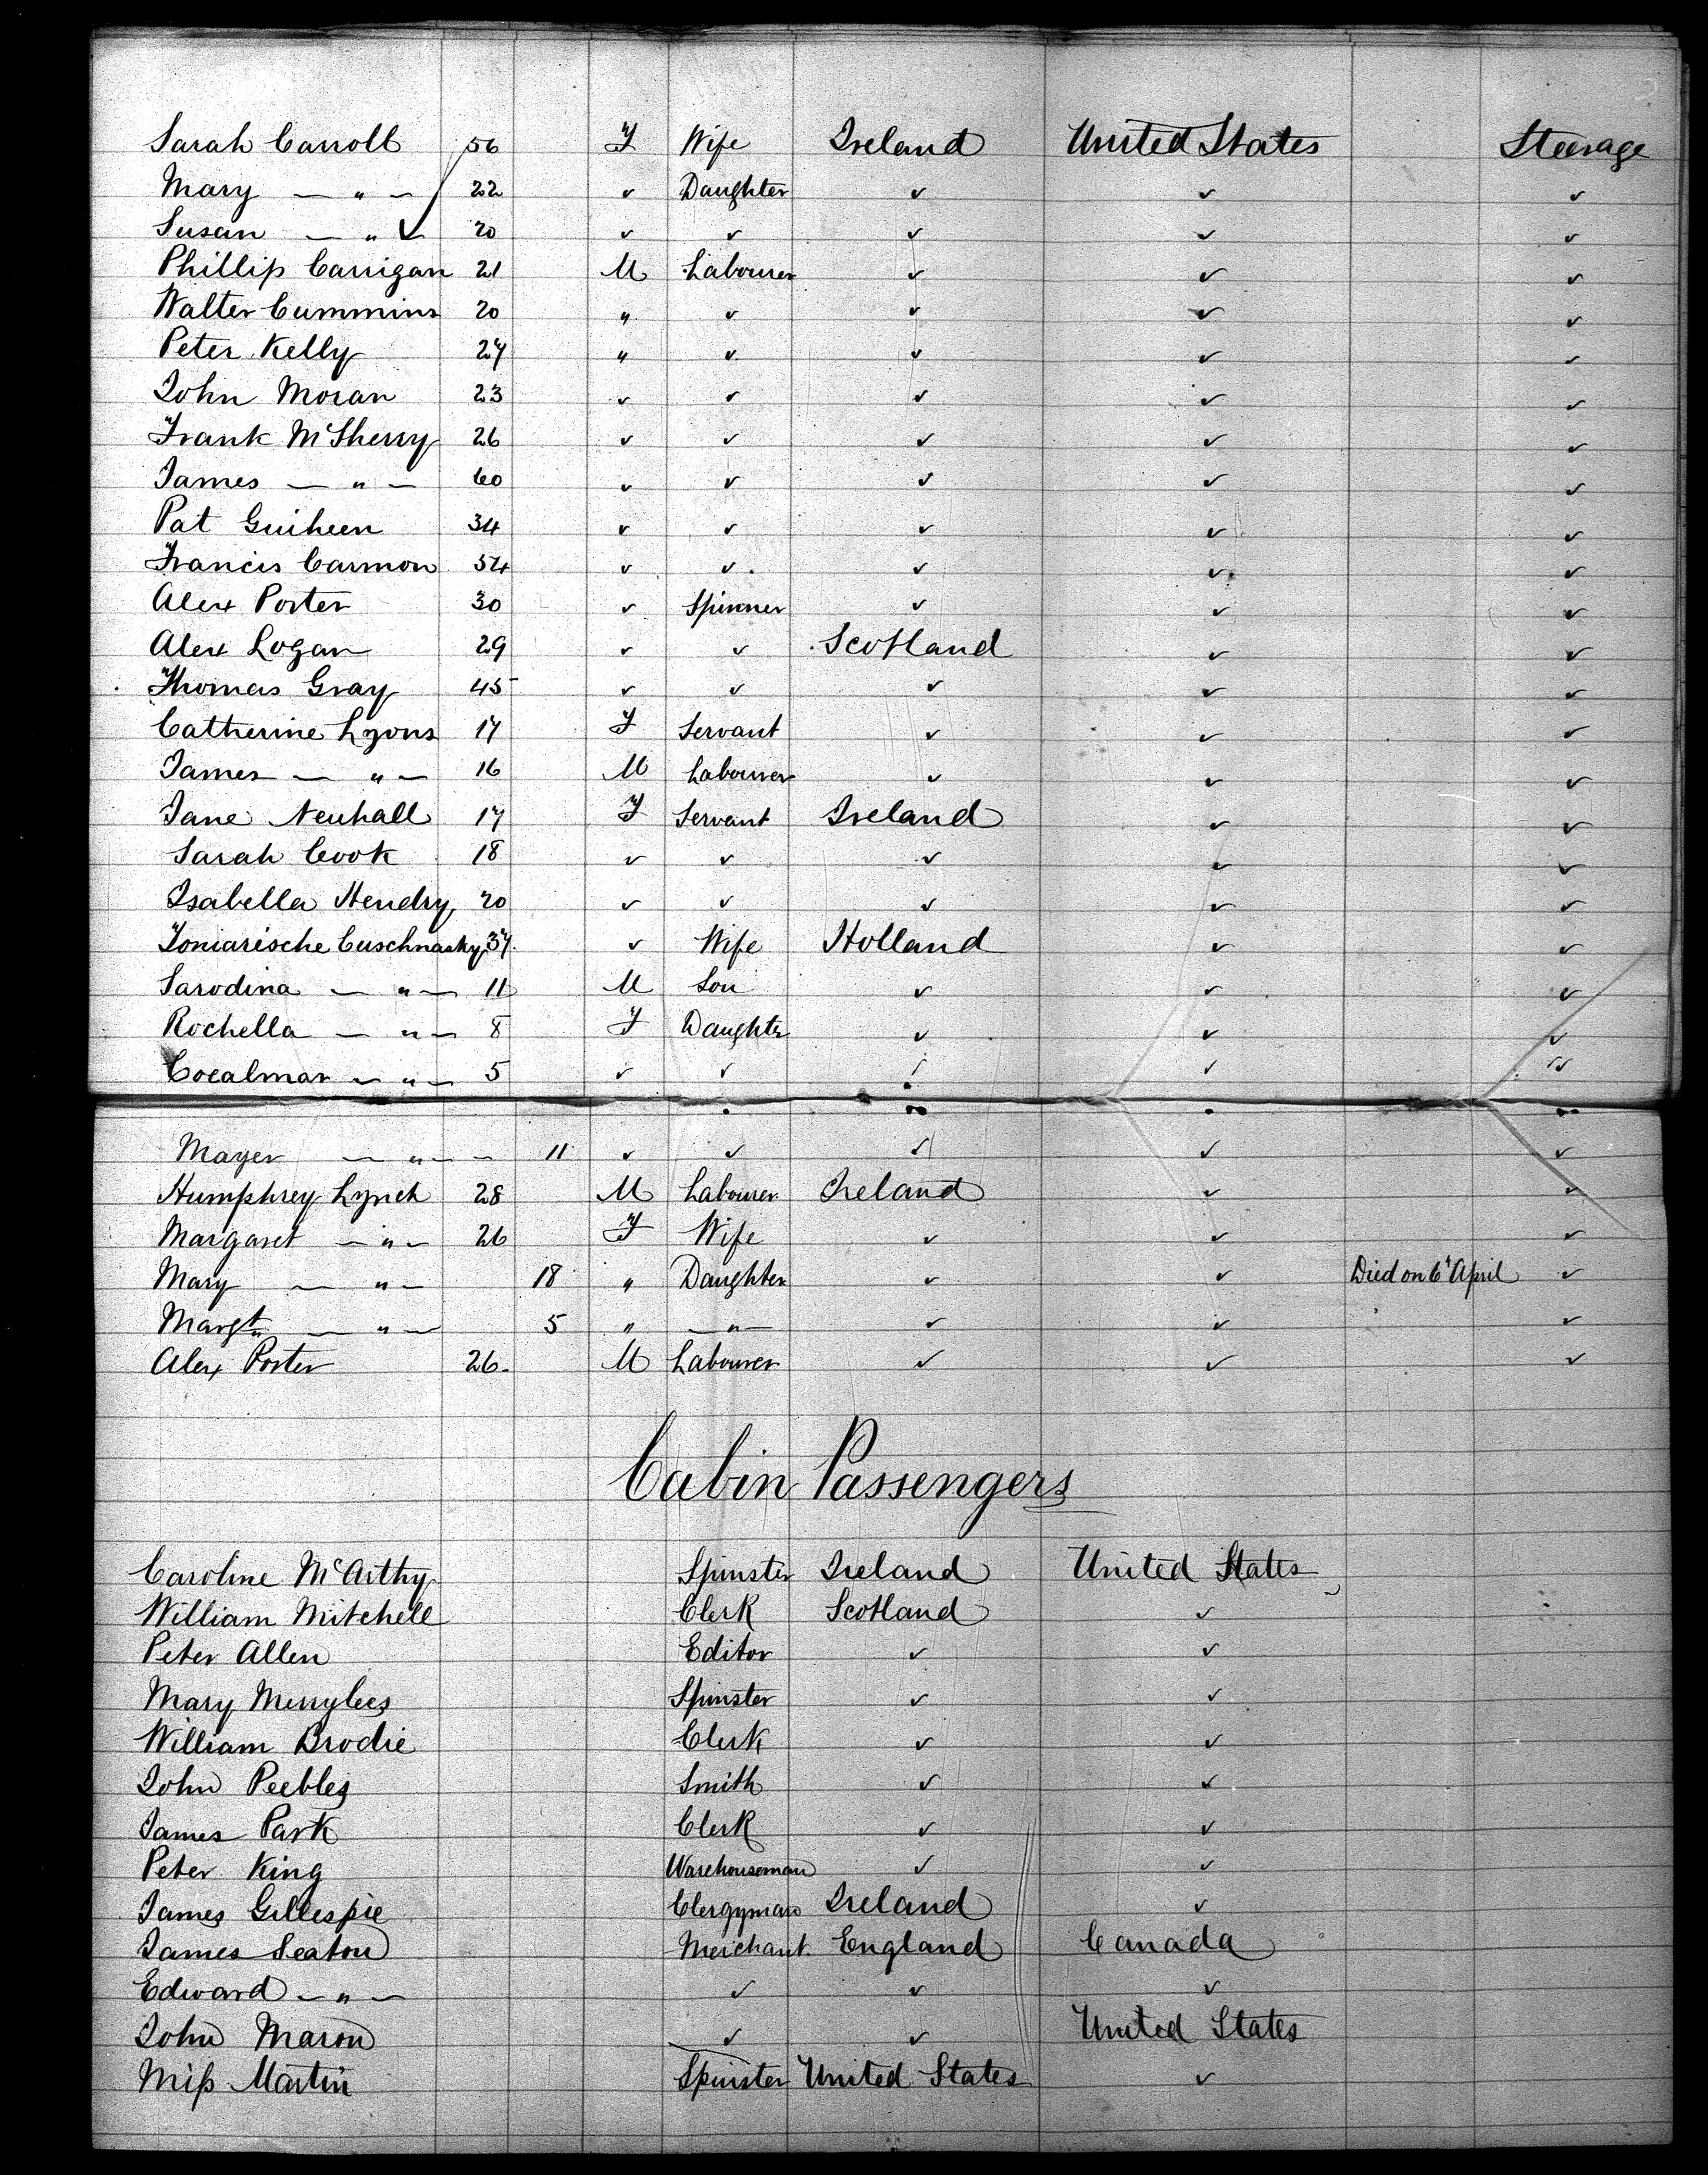 Sarah Carroll 56 F Wife Ireland United States Steerage
Mary — " — 22 ✓ Daughter ✓ ✓ ✓
Susan — " — 20 ✓ ✓ ✓ ✓ ✓
Phillip Carrigan 21 M Labourer ✓ ✓ ✓
Walter Cummins 20 " ✓ ✓ ✓ ✓
Peter Kelly 27 " ✓ ✓ ✓ ✓
John Moran 23 ✓ ✓ ✓ ✓ ✓
Frank McSherry 26 ✓ ✓ ✓ ✓ ✓
James — " — 60 ✓ ✓ ✓ ✓ ✓
Pat Guiheen 34 ✓ ✓ ✓ ✓ ✓
Francis Carmon 54 ✓ ✓ ✓ ✓ ✓
Alex Porter 30 ✓ Spinner ✓ ✓ ✓
Alex Logan 29 ✓ ✓ Scotland ✓ ✓
Thomas Gray 45 ✓ ✓ ✓ ✓ ✓
Catherine Lyons 17 F Servant ✓ ✓ ✓
James — " — 16 M Labourer ✓ ✓ ✓
Jane Neuhall 17 F Servant Ireland ✓ ✓
Sarah Cook 18 ✓ ✓ ✓ ✓ ✓
Isabella Hendry 20 ✓ ✓ ✓ ✓ ✓
Toniarische Cuschnasky 37 ✓ Wife Holland ✓ ✓
Sarodina — " — 11 M Son ✓ ✓ ✓
Rochella — " — 8 F Daughter ✓ ✓ ✓
Cocalman — " — 5 ✓ ✓ ✓ ✓ ✓
Mayer — " — 11 ✓ ✓ ✓ ✓ ✓
Humphrey Lynch 28 M Labourer Ireland ✓ ✓
Margaret — " — 26 F Wife ✓ ✓ ✓
Mary — " — 18 " Daughter ✓ ✓ Died on 6" April ✓
Margt — " — 5 " — " — ✓ ✓ ✓
Alex Porter 26 M Labourer ✓ ✓ ✓
Cabin Passengers
Caroline McArthy Spinster Ireland United States
William Mitchell Clerk Scotland ✓
Peter Allen Editor ✓ ✓
Mary Merrylees Spinster ✓ ✓
William Brodie Clerk ✓ ✓
John Peebles Smith ✓ ✓
James Park Clerk ✓ ✓
Peter King Warehouseman ✓ ✓
James Gillespie Clergyman Ireland ✓
James Seaton Merchant England Canada
Edward — " — ✓ ✓ ✓
John Mason ✓ ✓ United States
Miss Martin Spinster United States ✓